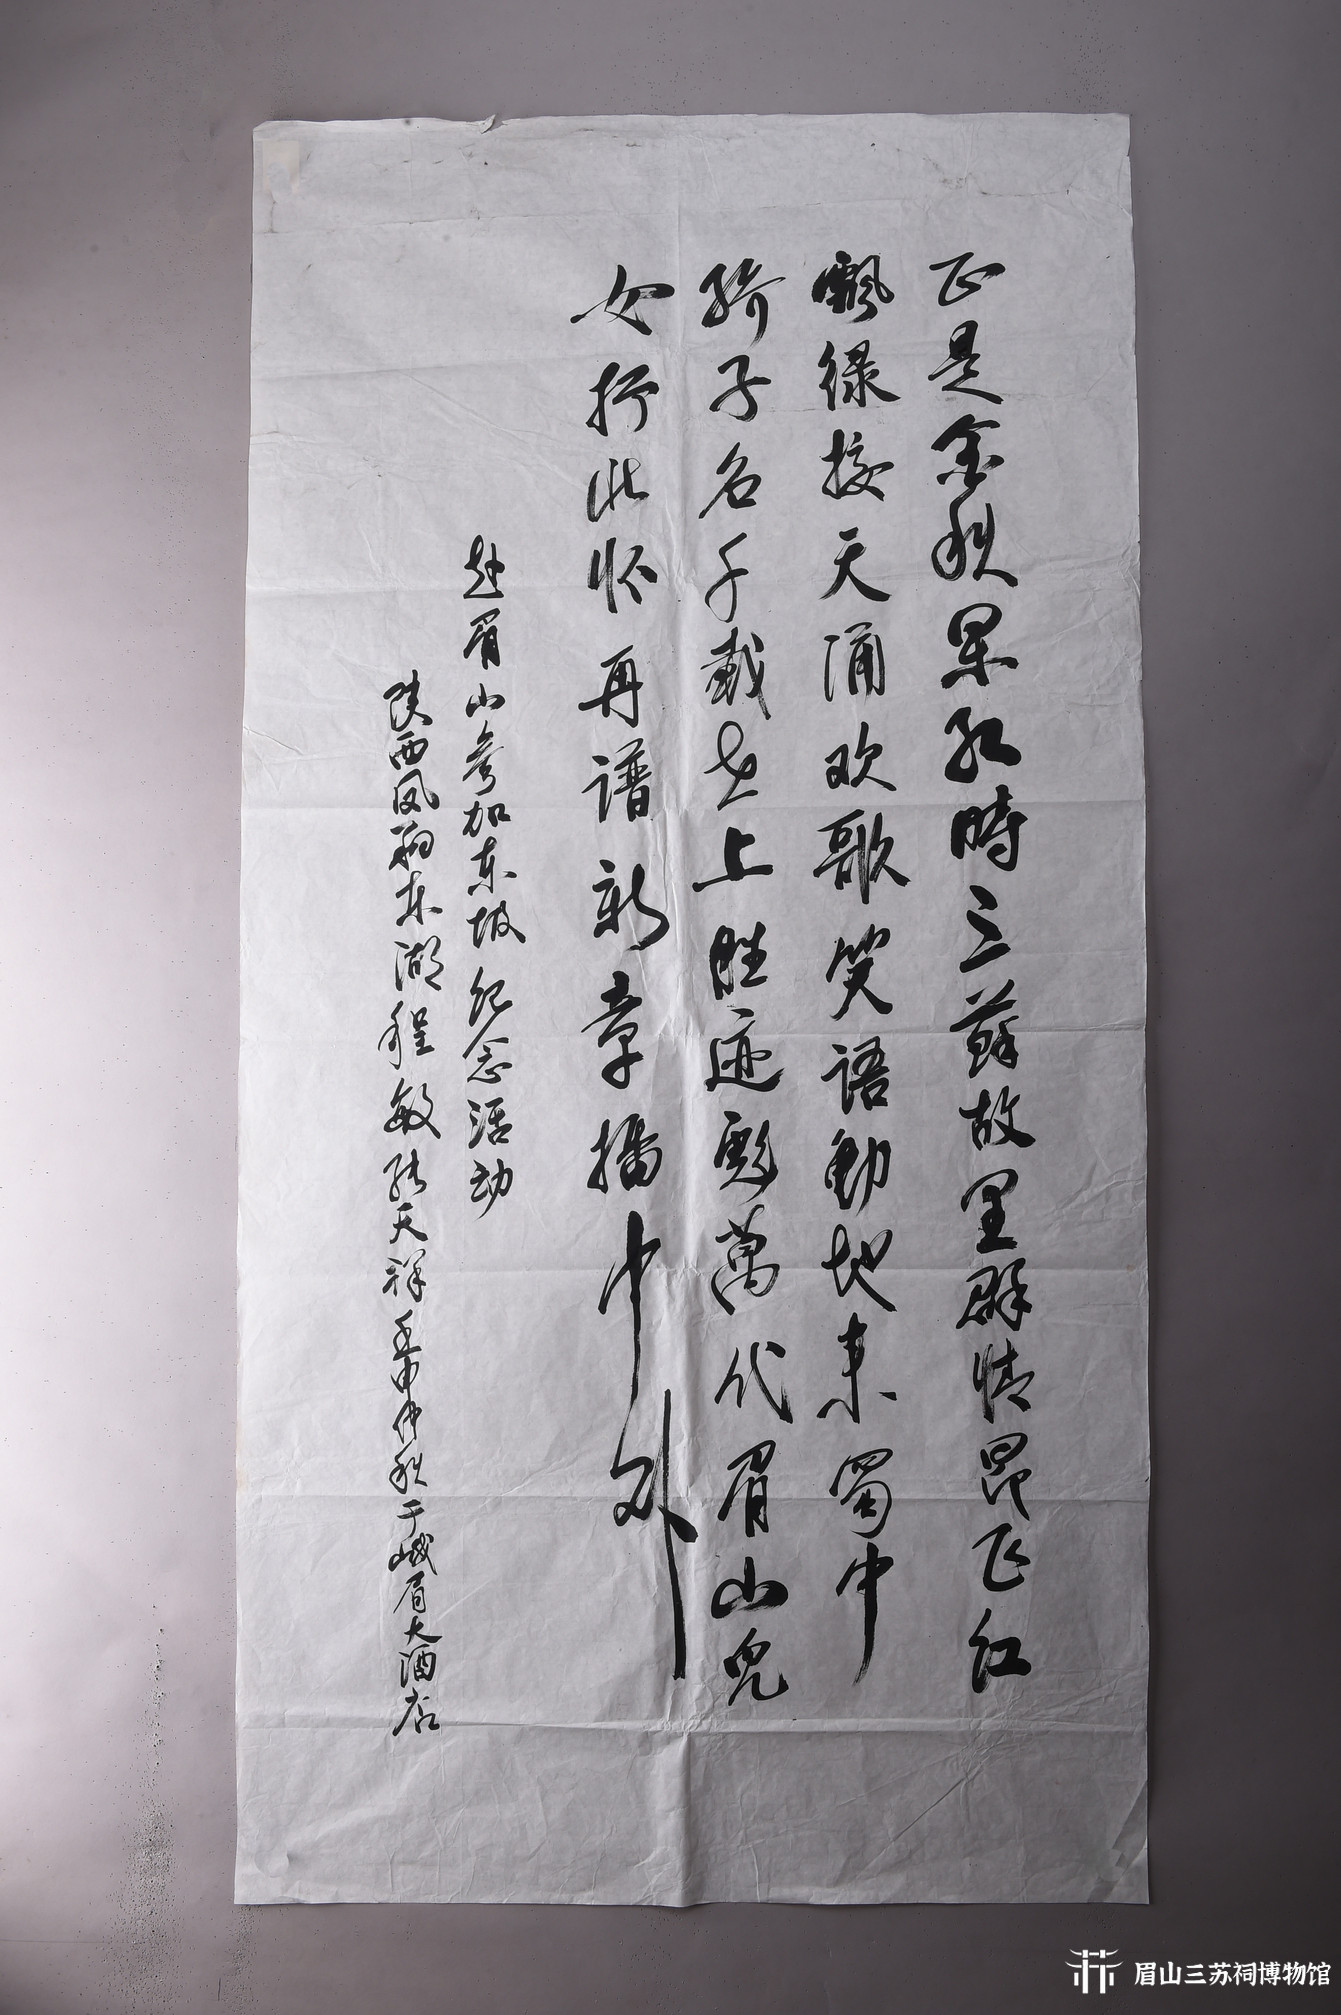 正是金秋果红時三蘇故里群情昂飞红
飘绿接天涌欢歌笑語動地来蜀中
骄子名千載世上胜迹彪萬代眉山兒
女抒此怀再谱新章播中外
赴眉山参加东坡纪念活动
陕西凤翔东湖程敏 天祥壬申仲秋于峨眉大酒店
眉山三苏祠博物馆